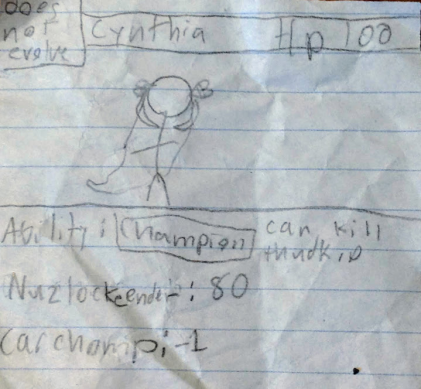 does
not
evolve
Cynthia Hp 100
Ability: Champion can kill
thudkip
Nuzlockeender: 80
Carchomp: -1